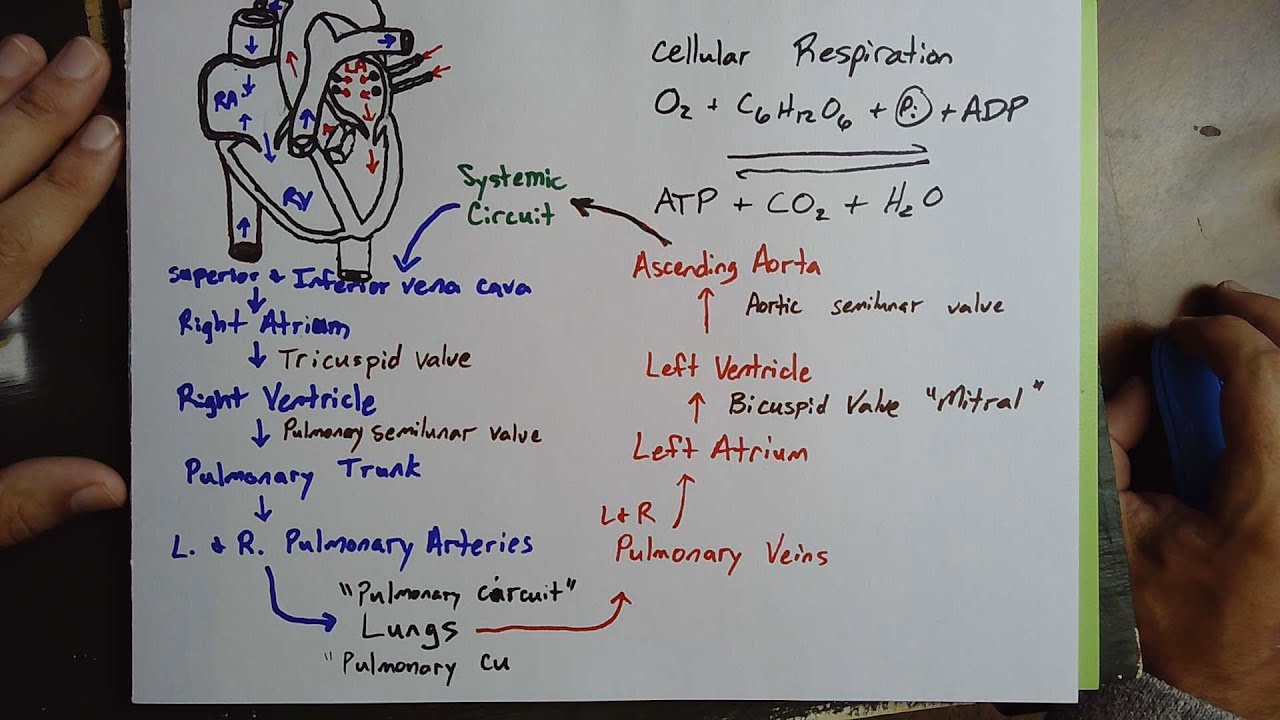 LA
RA
RV
Cellular Respiration
O₂ + C₆H₁₂O₆ + Pi + ADP
ATP + CO₂ + H₂O
Systemic
Circuit
Superior & Inferior vena cava
Right Atrium
Tricuspid valve
Right Ventricle
Pulmonary semilunar valve
Pulmonary Trunk
L. & R. Pulmonary Arteries
"Pulmonary circuit"
Lungs
"Pulmonary cu
L & R
Pulmonary Veins
Left Atrium
Bicuspid Valve "Mitral"
Left Ventricle
Aortic semilunar valve
Ascending Aorta